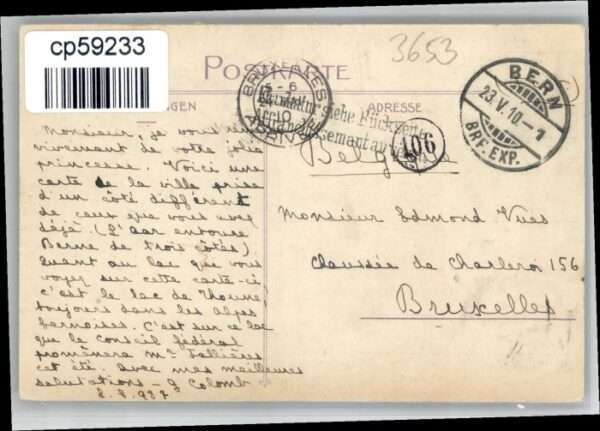 cp59233
3653
POSTKARTE
BERN
23.V.10-1
BRF. EXP.
BRUXELLES
5-6
10
106
ADRESSE
Belgique
Monsieur Edmond Vues
Chaussée de Charleroi 156
Bruxelles
Monsieur, je vous remercie
vivement de votre jolie
princesse. Voici une
carte de la ville prise
d'un côté différent
de ceux que vous avez
déjà. (L'Aar entoure
Berne de trois côtés)
Quant au lac que vous
voyez sur cette carte-ci,
c'est le lac de Thoune,
toujours dans les alpes
bernoises. C'est sur ce lac
que le Conseil fédéral
promènera Mr Fallières
cet été. Avec mes meilleures
salutations - G Colomb